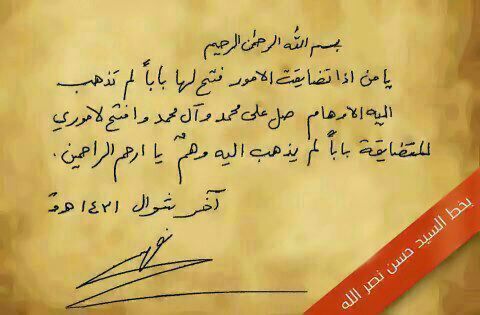 بسم الله الرحمن الرحيم
يا من اذا تضايقت الامور فتح لها باباً لم تذهب
اليه الاوهام صل على محمد وآل محمد وافتح لاموري
المتضايقة باباً لم يذهب اليه وهمٌ يا ارحم الراحمين .
آخر شوال ١٤٣١ هـ
بخط السيد حسن نصر الله